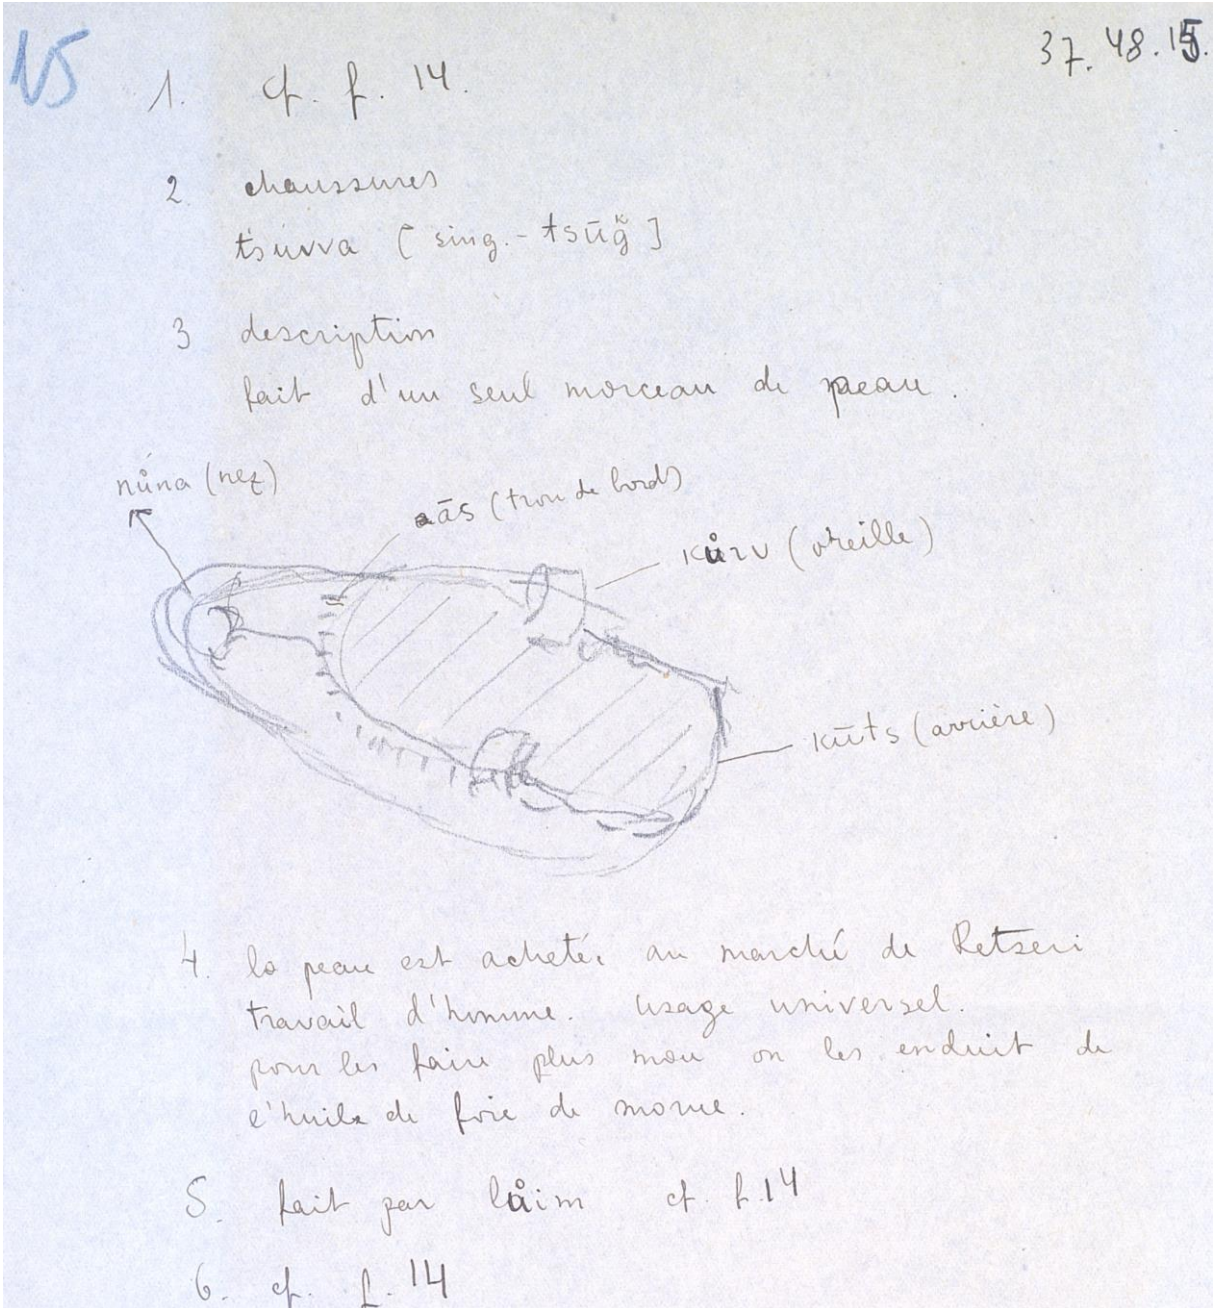 15
37. 48. 15.
1. cf. f. 14.
2 chaussures
tsuvva [sing. - tsūğ]
3 description
fait d'un seul morceau de peau.
nůna (nez)
ās (trou de bord)
kůrv (oreille)
kūts (arrière)
4. la peau est achetée au marché de Retseni
travail d'homme. Usage universel.
pour les faire plus mou on les enduit de
l'huile de foie de morue.
5. fait par låim cf. f. 14
6. cf. f. 14